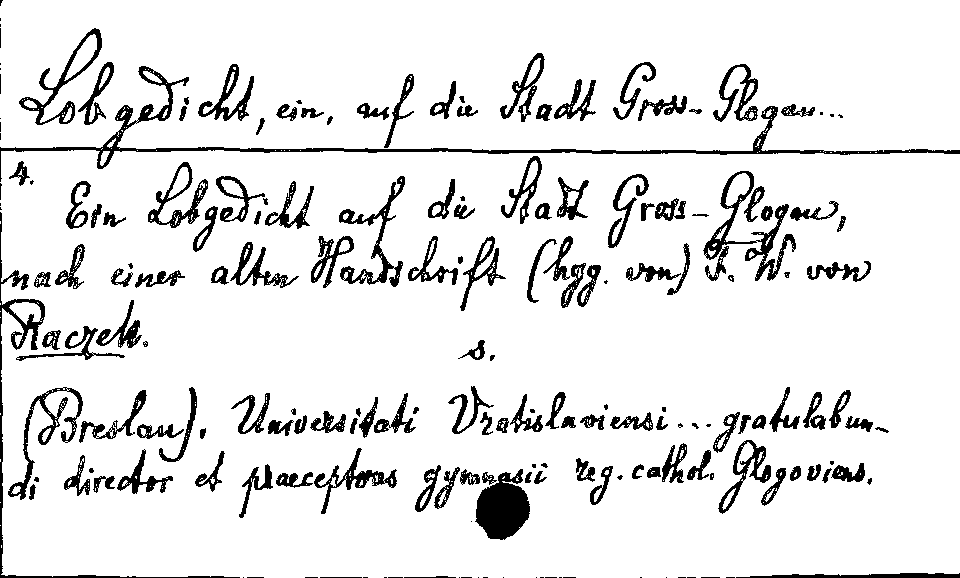 Lobgedicht, ein, auf die Stadt Gross-Glogau...
4.
Ein Lobgedicht auf die Stadt Gross-Glogau,
nach einer alten Handschrift (hgg. von) F. W. von
Raczek.
s.
(Breslau). Universitati Vratislaviensi... gratulabun-
di director et praeceptores gymnasii reg. cathol. Glogoviens.